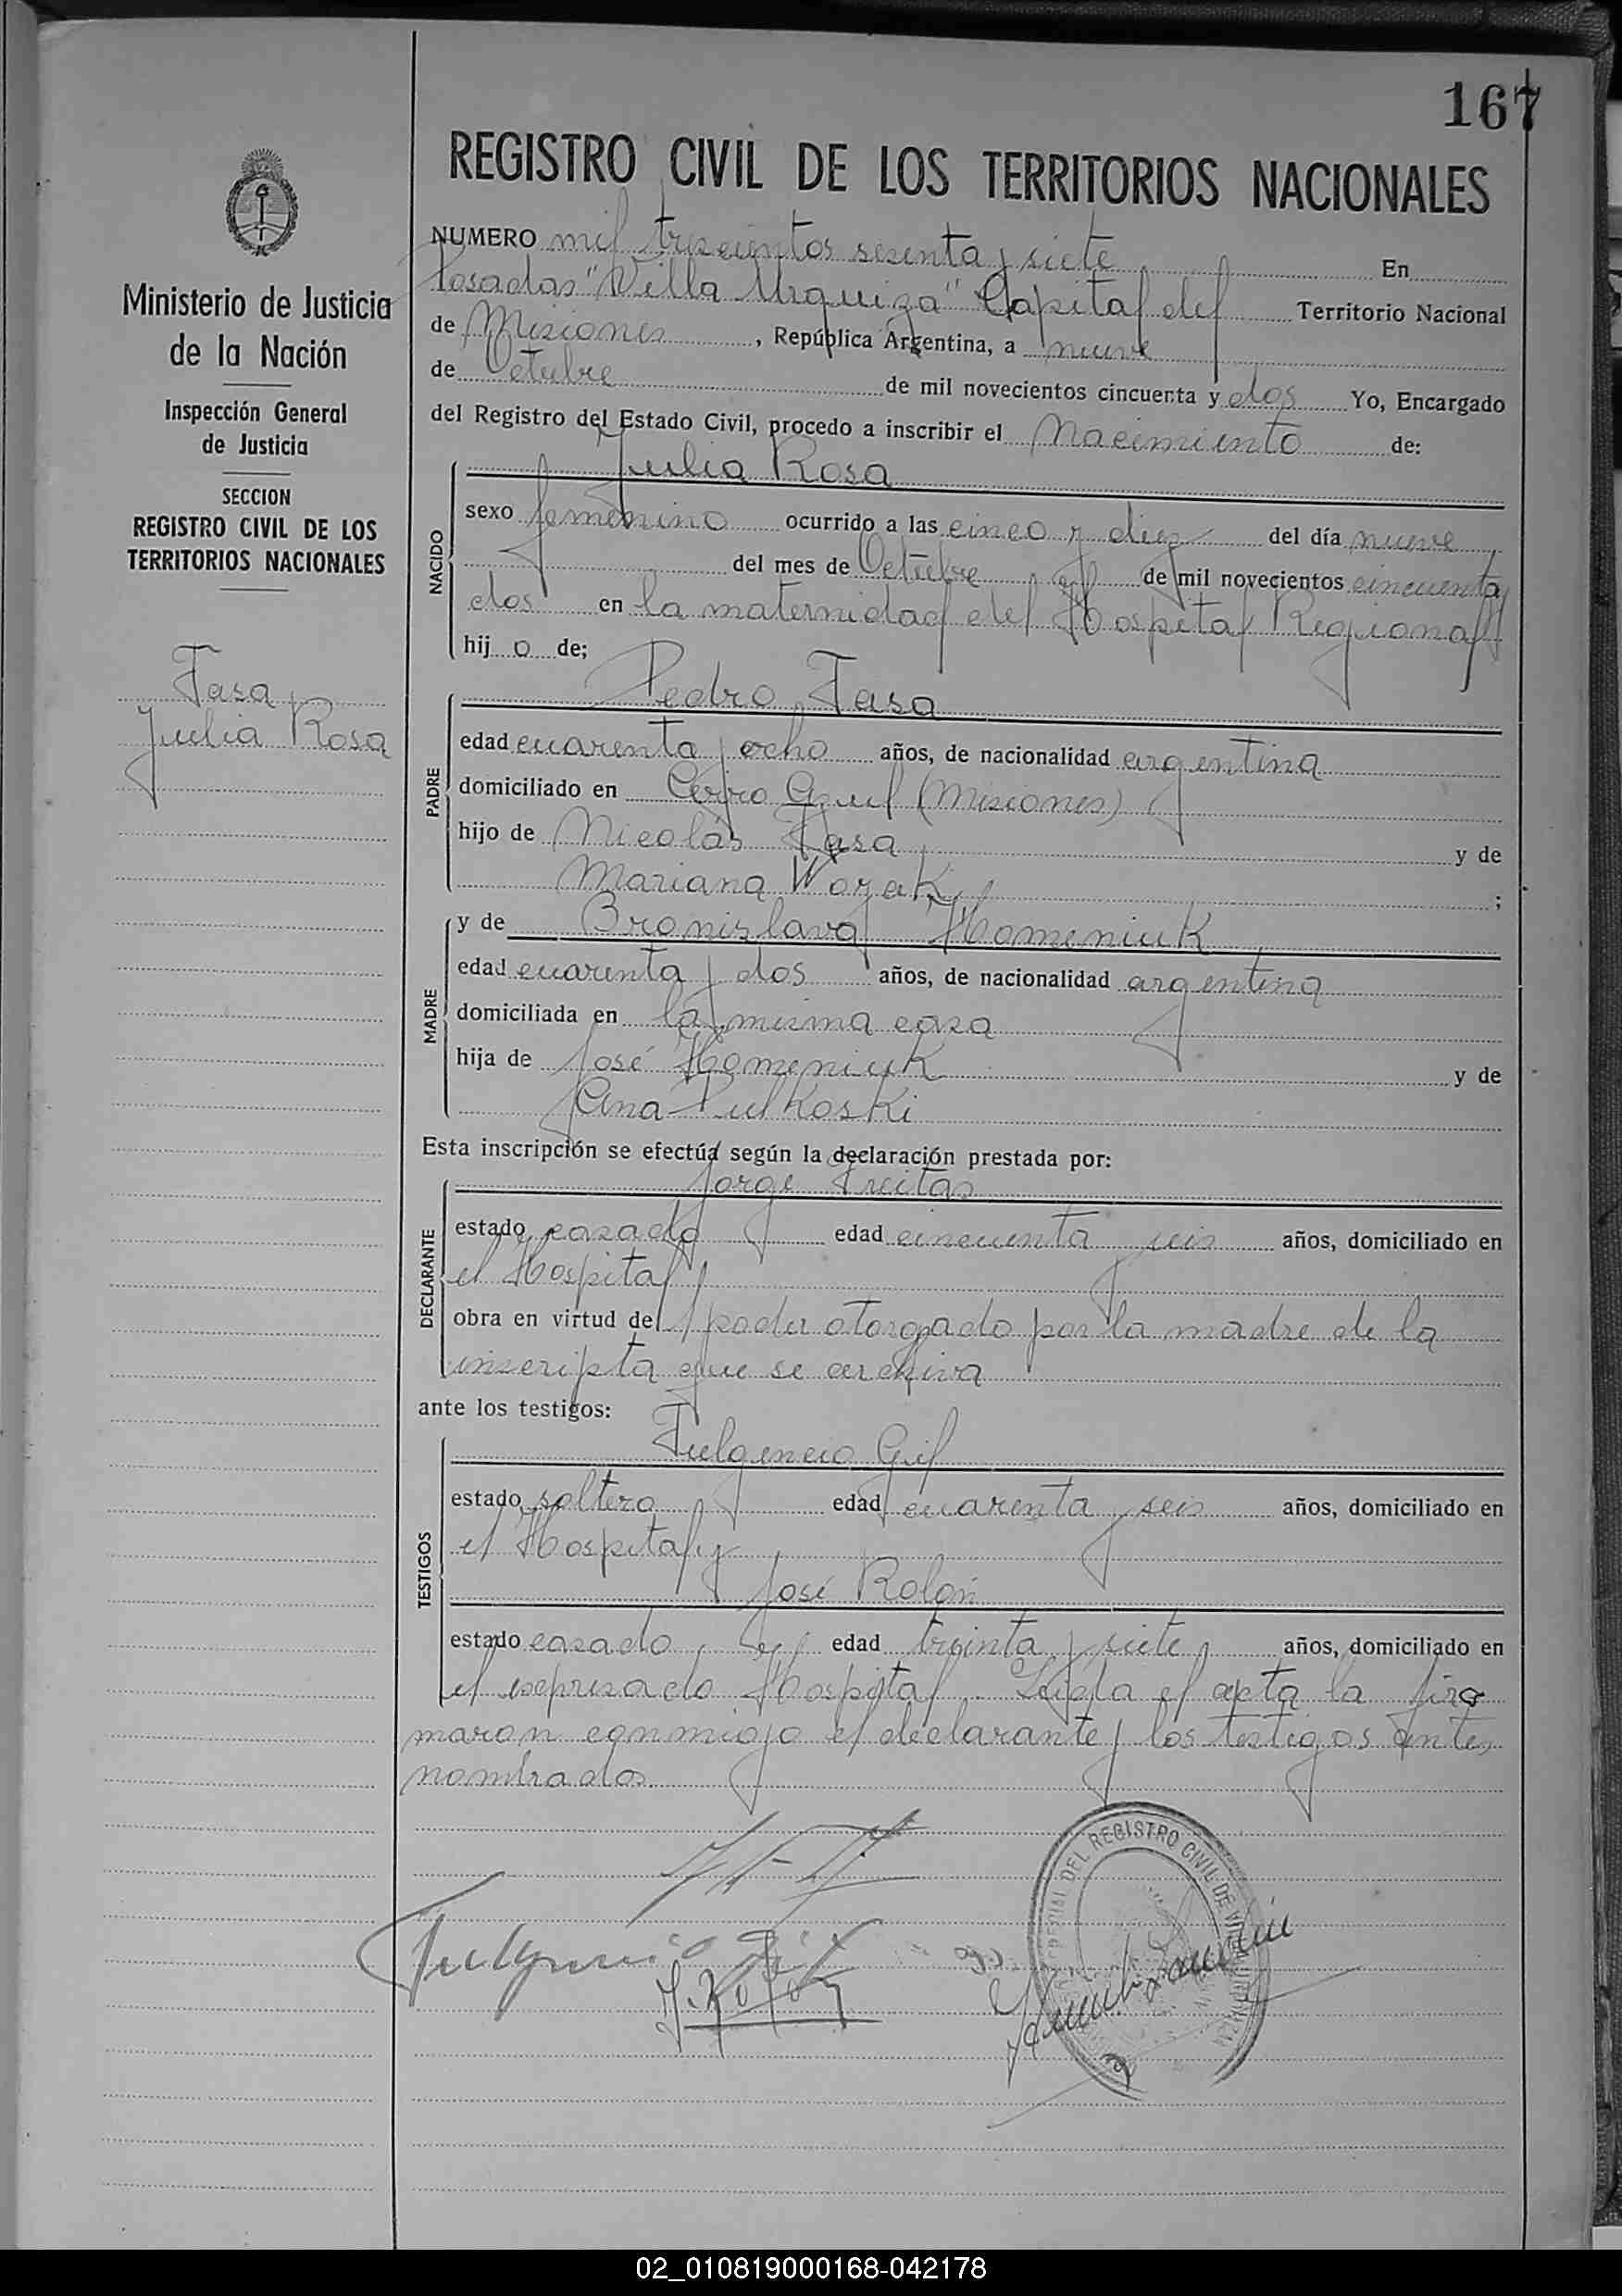 167
REGISTRO CIVIL DE LOS TERRITORIOS NACIONALES
Ministerio de Justicia
de la Nación
Inspección General
de Justicia
SECCION
REGISTRO CIVIL DE LOS
TERRITORIOS NACIONALES
Tasa
Julia Rosa
NUMERO mil trescientos sesenta y siete En
Posadas "Villa Urquiza" Capital del Territorio Nacional
de Misiones, República Argentina, a nueve
de Octubre de mil novecientos cincuenta y dos Yo, Encargado
del Registro del Estado Civil, procedo a inscribir el Nacimiento de:
NACIDO
Julia Rosa
sexo femenino ocurrido a las cinco y diez del día nueve
del mes de Octubre de mil novecientos cincuenta
dos en la maternidad del Hospital Regional
hijo de;
PADRE
Pedro Tasa
edad cuarenta y ocho años, de nacionalidad argentina
domiciliado en Cerro Azul (Misiones)
hijo de Nicolás Tasa y de
Mariana Wozak ;
MADRE
y de Bronislava Homeniuk
edad cuarenta y dos años, de nacionalidad argentina
domiciliada en la misma casa
hija de José Homeniuk y de
Ana Pulkoski
Esta inscripción se efectúa según la declaración prestada por:
DECLARANTE
Jorge Freitas
estado casado edad cincuenta y seis años, domiciliado en
el Hospital
obra en virtud del poder otorgado por la madre de la
inscripta que se archiva
ante los testigos:
TESTIGOS
Fulgencio Gil
estado soltero edad cuarenta y seis años, domiciliado en
el Hospital y
José Rolón
estado casado edad treinta y siete años, domiciliado en
el expresado Hospital. Leída el acta la fir
maron conmigo el declarante y los testigos antes
nombrados
Fulgencio Gil
J. Rolón
DEL REGISTRO CIVIL DE VILLA URQUIZA
02_010819000168-042178